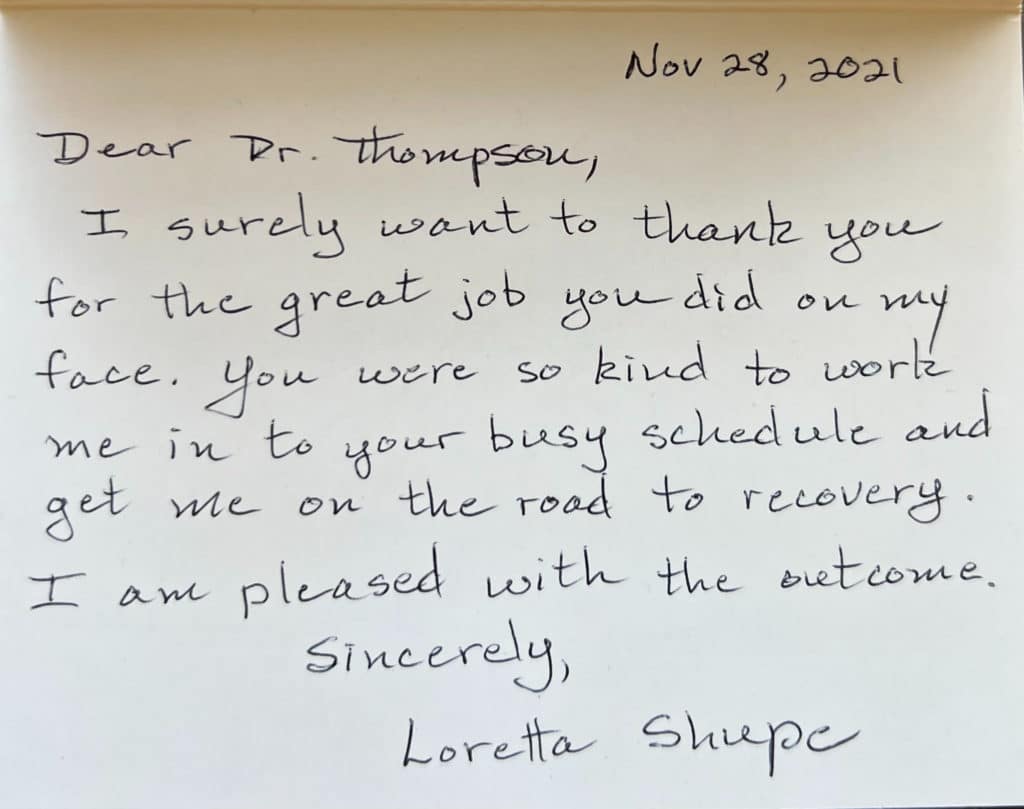 Nov 28, 2021
Dear Dr. Thompson,
I surely want to thank you
for the great job you did on my
face. You were so kind to work
me in to your busy schedule and
get me on the road to recovery.
I am pleased with the outcome.
Sincerely,
Loretta Shupe